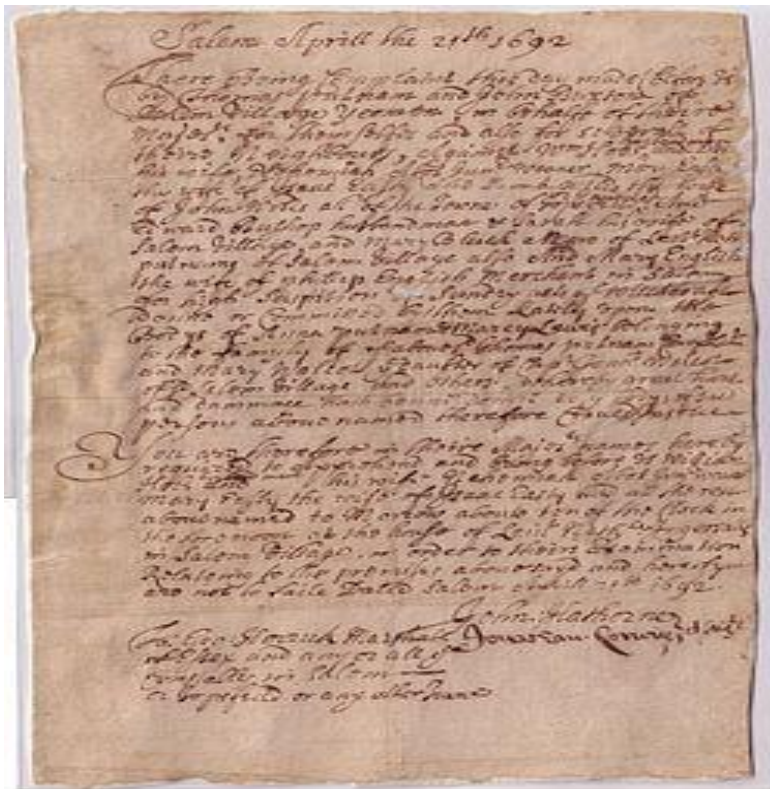 Salem Aprill the 21th 1692
There being Complaint this day made before us
by Thomas Putnam and John Buxton of
Salem Village Yeomen in behalfe of theire
Majests for themselfes and also for severall of
theire Neighbours, Against
his wife
the wife of Isaac Easty
of John Wilds of the towne of and
Edward Bushop husbandman & Sarah his wife of
Salem Village, and Mary Black a Negro of Leut Nath
putnams of Salem Village also And Mary English
the wife of phillip English Merchant in Salem
for high Suspition of Sundry acts of Witchcraft
donne or Committed by them Lately upon the
Bodys of Anna putnam & Marcy Lewis belonging
to the family of Thomas putnam
and Mary Walcot daughter of Capt Jonat Walcot
of Salem Village and others, whereby great hurt
hath benne donne
persons above named therefore Craved Justice
You are therefore in theire Majests names hereby
required to apprehend and bring before us
his wife
Mary Easty the wife of Isaac Easty and all the rest
abovenamed to Morrow aboute ten of the Clock in
the forenoon at the house of Leut Nath Ingersalls
in Salem Village in order to theire Examination
Relateing to the premises abovesayd and hereof you
are not to faile Dated Salem Aprill 21th 1692
John Hathorne
Jonathan Corwin
To Geo: Herrick Marshall
of Essex and any or all ye
Constables in Salem
or Topsfeild or any other Towne